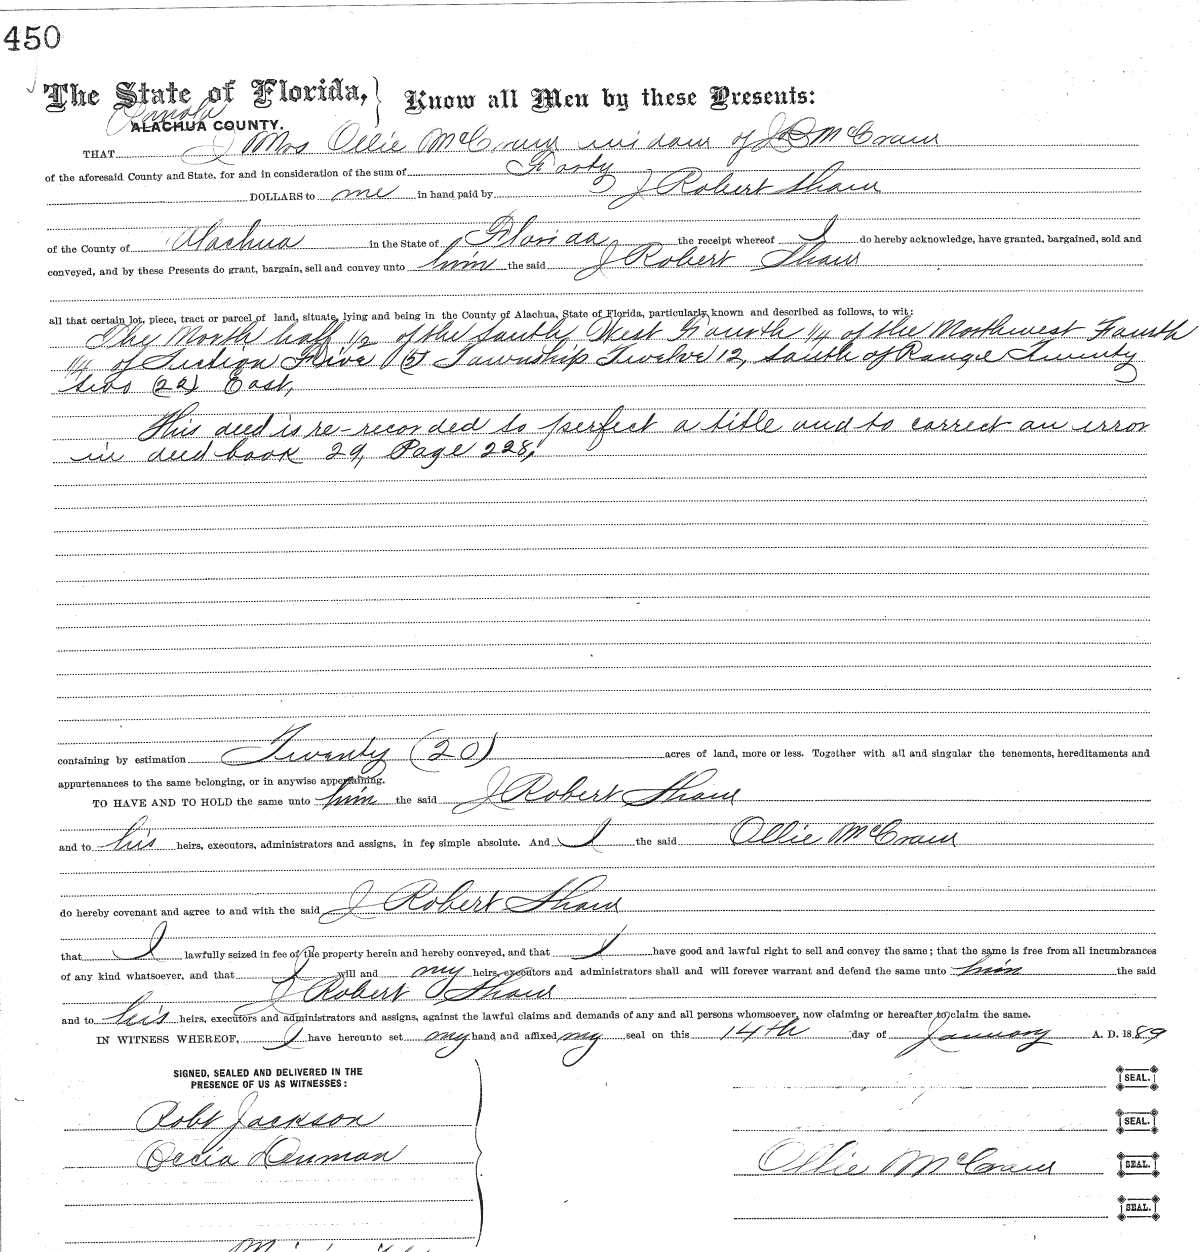 450
The State of Florida, } Know all Men by these Presents:
ALACHUA COUNTY.
THAT I Mrs Ollie McCraw widow of J McCraw
of the aforesaid County and State, for and in consideration of the sum of Forty
DOLLARS to me in hand paid by J Robert Shaw
of the County of Alachua in the State of Florida the receipt whereof I do hereby acknowledge, have granted, bargained, sold and
conveyed, and by these Presents do grant, bargain, sell and convey unto him the said J Robert Shaw
all that certain lot, piece, tract or parcel of land, situate, lying and being in the County of Alachua, State of Florida, particularly known and described as follows, to wit:
The North half 1/2 of the South West Fourth 1/4 of the Northwest Fourth
1/4 of Section Five (5) Township Twelve 12, South of Range Twenty
two (22) East,
This deed is re-recorded to perfect a title and to correct an error
in deed book 29, Page 228,
containing by estimation Twenty (20) acres of land, more or less. Together with all and singular the tenements, hereditaments and
appurtenances to the same belonging, or in anywise appertaining.
TO HAVE AND TO HOLD the same unto him the said J Robert Shaw
and to his heirs, executors, administrators and assigns, in fee simple absolute. And I the said Ollie McCraw
do hereby covenant and agree to and with the said J Robert Shaw
that I lawfully seized in fee of the property herein and hereby conveyed, and that I have good and lawful right to sell and convey the same; that the same is free from all incumbrances
of any kind whatsoever, and that I will and my heirs, executors and administrators shall and will forever warrant and defend the same unto him the said
J Robert Shaw
and to his heirs, executors and administrators and assigns, against the lawful claims and demands of any and all persons whomsoever, now claiming or hereafter to claim the same.
IN WITNESS WHEREOF, I have hereunto set my hand and affixed my seal on this 14th day of January A. D. 1889
SIGNED, SEALED AND DELIVERED IN THE
PRESENCE OF US AS WITNESSES:
SEAL.
Robt Jackson SEAL.
Occia Denman Ollie McCraw SEAL.
SEAL.